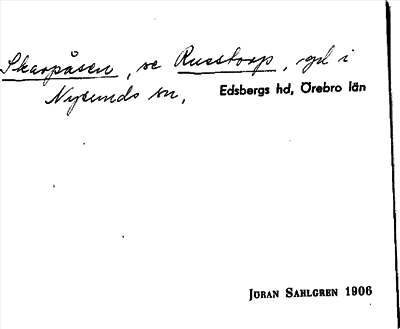 Skarpåsen, se Russtorp, gd i
Nysunds sn, Edsbergs hd, Örebro län
JÖRAN SAHLGREN 1906